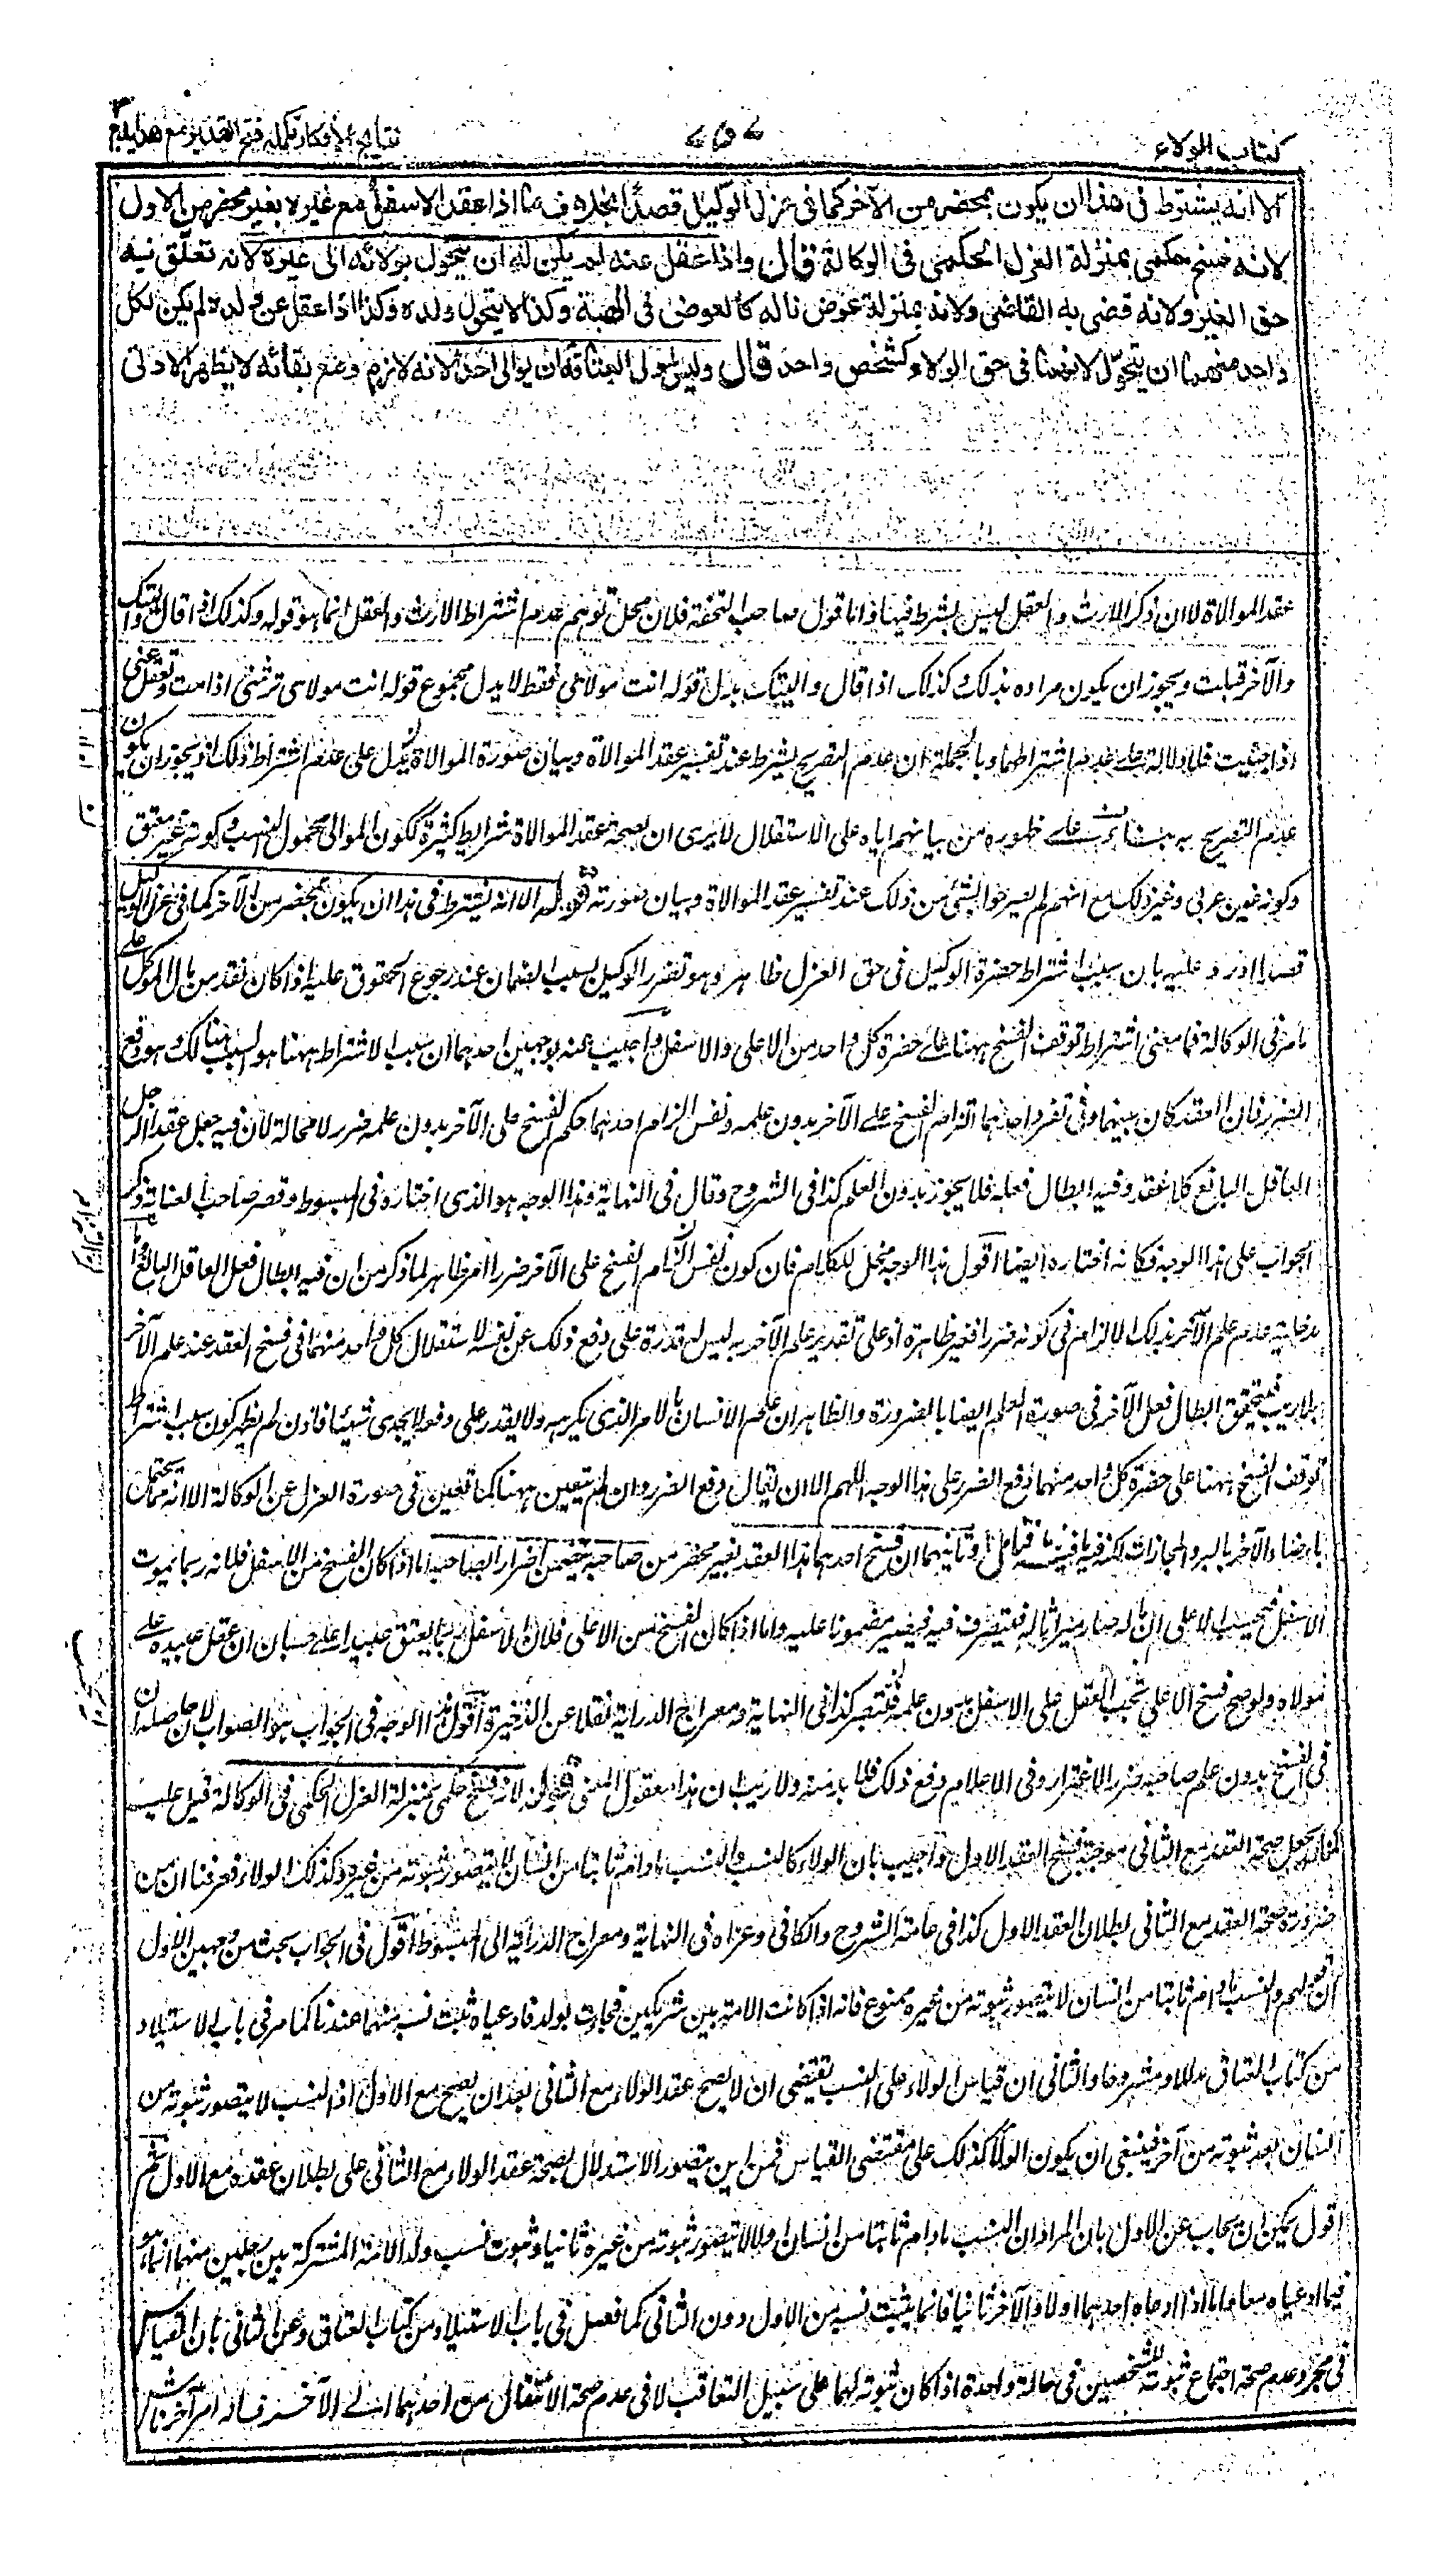 كتاب الولاء
نتايج الافكار تكمله فتح القدير مع هدايه ج ٣
الا انه يشترط فى هذا ان يكون بمحضر من الآخر كما فى عزل الوكيل قصدا بخلاف ما اذا عقد الاسفل مع غيره بغير محضر من الاول
لانه فسخ حكمى بمنزلة العزل الحكمى فى الوكالة قال واذا عقل عنه لم يكن له ان يتحول بولائه الى غيره لانه تعلق فيه
حق الغير ولانه قضى به القاضى ولانه بمنزلة عوض ناله كالعوض فى الهبة وكذا لا يتحول ولده وكذا اذا عقل عن ولده لم يكن لكل
واحد منهما ان يتحول لانهما فى حق الولاء كشخص واحد قال وليس لمولى العتاقة ان يوالى احدا لانه لازم ومع بقائه لا يظهر الادنى
عقد الموالاة لا ان ذكر الارث والعقل ليس بشرط فيها واما قول صاحب التحفة فلان محل توهم عدم اشتراط الارث والعقل انما هو قوله وكذلك اذا قال واليتك
والآخر قبلت ويجوز ان يكون مراده بذلك كذلك اذا قال واليتك بدل قوله انت مولاى فقط لا بدل مجموع قوله انت مولاى ترثنى اذا مت وتعقل عنى
اذا جنيت فلا دلالة على عدم اشتراطهما وبالجملة ان عدم التصريح بشرط عند تفسير عقد الموالاة وبيان صورة الموالاة لا يدل على عدم اشتراط ذلك اذ يجوز ان يكون
عدم التصريح به بناء على ظهوره من بيانهم اياه على الاستقلال الا يرى ان لصحة عقد الموالاة شرايط كثيرة ككون الموالى مجهول النسب وكونه غير معتق
وكونه غير عربى وغير ذلك مع انهم لم يصرحوا بشئ من ذلك عند تفسير عقد الموالاة وبيان صورته قوله الا انه يشترط فى هذا ان يكون بمحضر من الآخر كما فى عزل الوكيل
قصدا اورد عليه بان سبب اشتراط حضرة الوكيل فى حق العزل ظاهر وهو تضرر الوكيل بسبب الضمان عند رجوع الحقوق عليه اذا كان نقد من مال الموكل على
ما مر فى الوكالة فما معنى اشتراط توقف الفسخ ههنا على حضرة كل واحد من الاعلى والاسفل واجيب عنه بوجهين احدهما ان سبب الاشتراط ههنا هو السبب هنالك وهو دفع
الضرر فان العقد كان بينهما وفى تفرد احدهما الزام الفسخ على الآخر بدون علمه ونفس الزام احدهما حكم الفسخ على الآخر بدون علمه ضرر لا محالة لان فيه جعل عقد الرجل
العاقل البالغ كلا عقد وفيه ابطال فعله فلا يجوز بدون العلم كذا فى الشروح وقال فى النهاية وهذا الوجه هو الذى اختاره فى المبسوط وقصر صاحب العناية ذكر
الجواب على هذا الوجه فكانه اختاره ايضا اقول هذا الوجه محل للكلام فان كون نفس الزام الفسخ على الآخر ضررا امر ظاهر لما ذكر من ان فيه ابطال فعل العاقل البالغ واما
مدخلية عدم علم الآخر بذلك الالزام فى كونه ضررا فغير ظاهرة اذ على تقدير علم الآخر به ليس له قدرة على دفع ذلك عن نفسه لاستقلال كل واحد منهما فى فسخ العقد عند علم الآخر
بلا ريب فيتحقق ابطال فعل الآخر فى صورة العلم ايضا بالضرورة والظاهر ان علم الانسان بالامر الذى يكرهه ولا يقدر على دفعه لا يجدى شيئا فاذن لم يظهر كون سبب اشتراط
توقف الفسخ ههنا على حضرة كل واحد منهما دفع الضرر على هذا الوجه اللهم الا ان يقال دفع الضرر وان لم يتعين ههنا كما تعين فى صورة العزل عن الوكالة الا انه محتمل
بارضاء الآخر بالبر والمجازات لكن فيه ما فيه تامل وثانيهما ان فسخ احدهما هذا العقد بغير محضر من صاحبه يتضمن اضرار الصاحبه اما اذا كان الفسخ من الاسفل فلانه ربما يموت
الاسفل فيحسب الاعلى ان ماله صار ميراثا له فيتصرف فيه فيصير مضمونا عليه واما اذا كان الفسخ من الاعلى فلان الاسفل ربما يعتق عبيدا على حسبان ان عقل عبيده على
مولاه ولو صح فسخ الاعلى يجب العقل على الاسفل بدون علمه فيتضرر كذا فى النهاية ومعراج الدراية نقلا عن الذخيرة اقول هذا الوجه فى الجواب هو الصواب لان حاصله ان
فى الفسخ بدون علم صاحبه ضرر الاغترار وفى الاعلام دفع ذلك فلا بد منه ولا ريب ان هذا معقول المعنى قوله لانه فسخ حكمى بمنزلة العزل الحكمى فى الوكالة قيل عليه
لماذا يجعل صحة العقد مع الثانى موجبة فسخ العقد الاول واجيب بان الولاء كالنسب والنسب ما دام ثابتا من انسان لا يتصور ثبوته من غيره وكذلك الولاء فعرفنا ان من
ضرورة صحة العقد مع الثانى بطلان العقد الاول كذا فى عامة الشروح والكافى وعزاه فى النهاية ومعراج الدراية الى المبسوط اقول فى الجواب بحث من وجهين الاول
ان قولهم والنسب ما دام ثابتا من انسان لا يتصور ثبوته من غيره ممنوع فانه اذا كانت الامة بين شريكين فجاءت بولد فادعياه ثبت نسبه منهما عندنا كما مر فى باب الاستيلاد
من كتاب العتاق مدللا ومشروحا والثانى ان قياس الولاء على النسب يقتضى ان لا يصح عقد الولاء مع الثانى بعد ان يصح مع الاول اذ النسب لا يتصور ثبوته من
انسان بعد ثبوته من آخر فينبغى ان يكون الولاء كذلك على مقتضى القياس فمن اين يتصور الاستدلال بصحة عقد الولاء مع الثانى على بطلان عقده مع الاول ثم
اقول يمكن ان يجاب عن الاول بان المراد ان النسب ما دام ثابتا من انسان اولا لا يتصور ثبوته من غيره ثانيا وثبوت نسب ولد الامة المشتركة بين رجلين منهما انما هو
فيما ادعياه معا واما اذا ادعاه احدهما اولا والآخر ثانيا فانما يثبت نسبه من الاول دون الثانى كما فصل فى باب الاستيلاد من كتاب العتاق وعن الثانى بان القياس
فى مجرد عدم صحة اجتماع ثبوته لشخصين فى حالة واحدة اذا كان ثبوته لهما على سبيل التعاقب لا فى عدم صحة الانتقال من احدهما الى الآخر فانه امر آخر